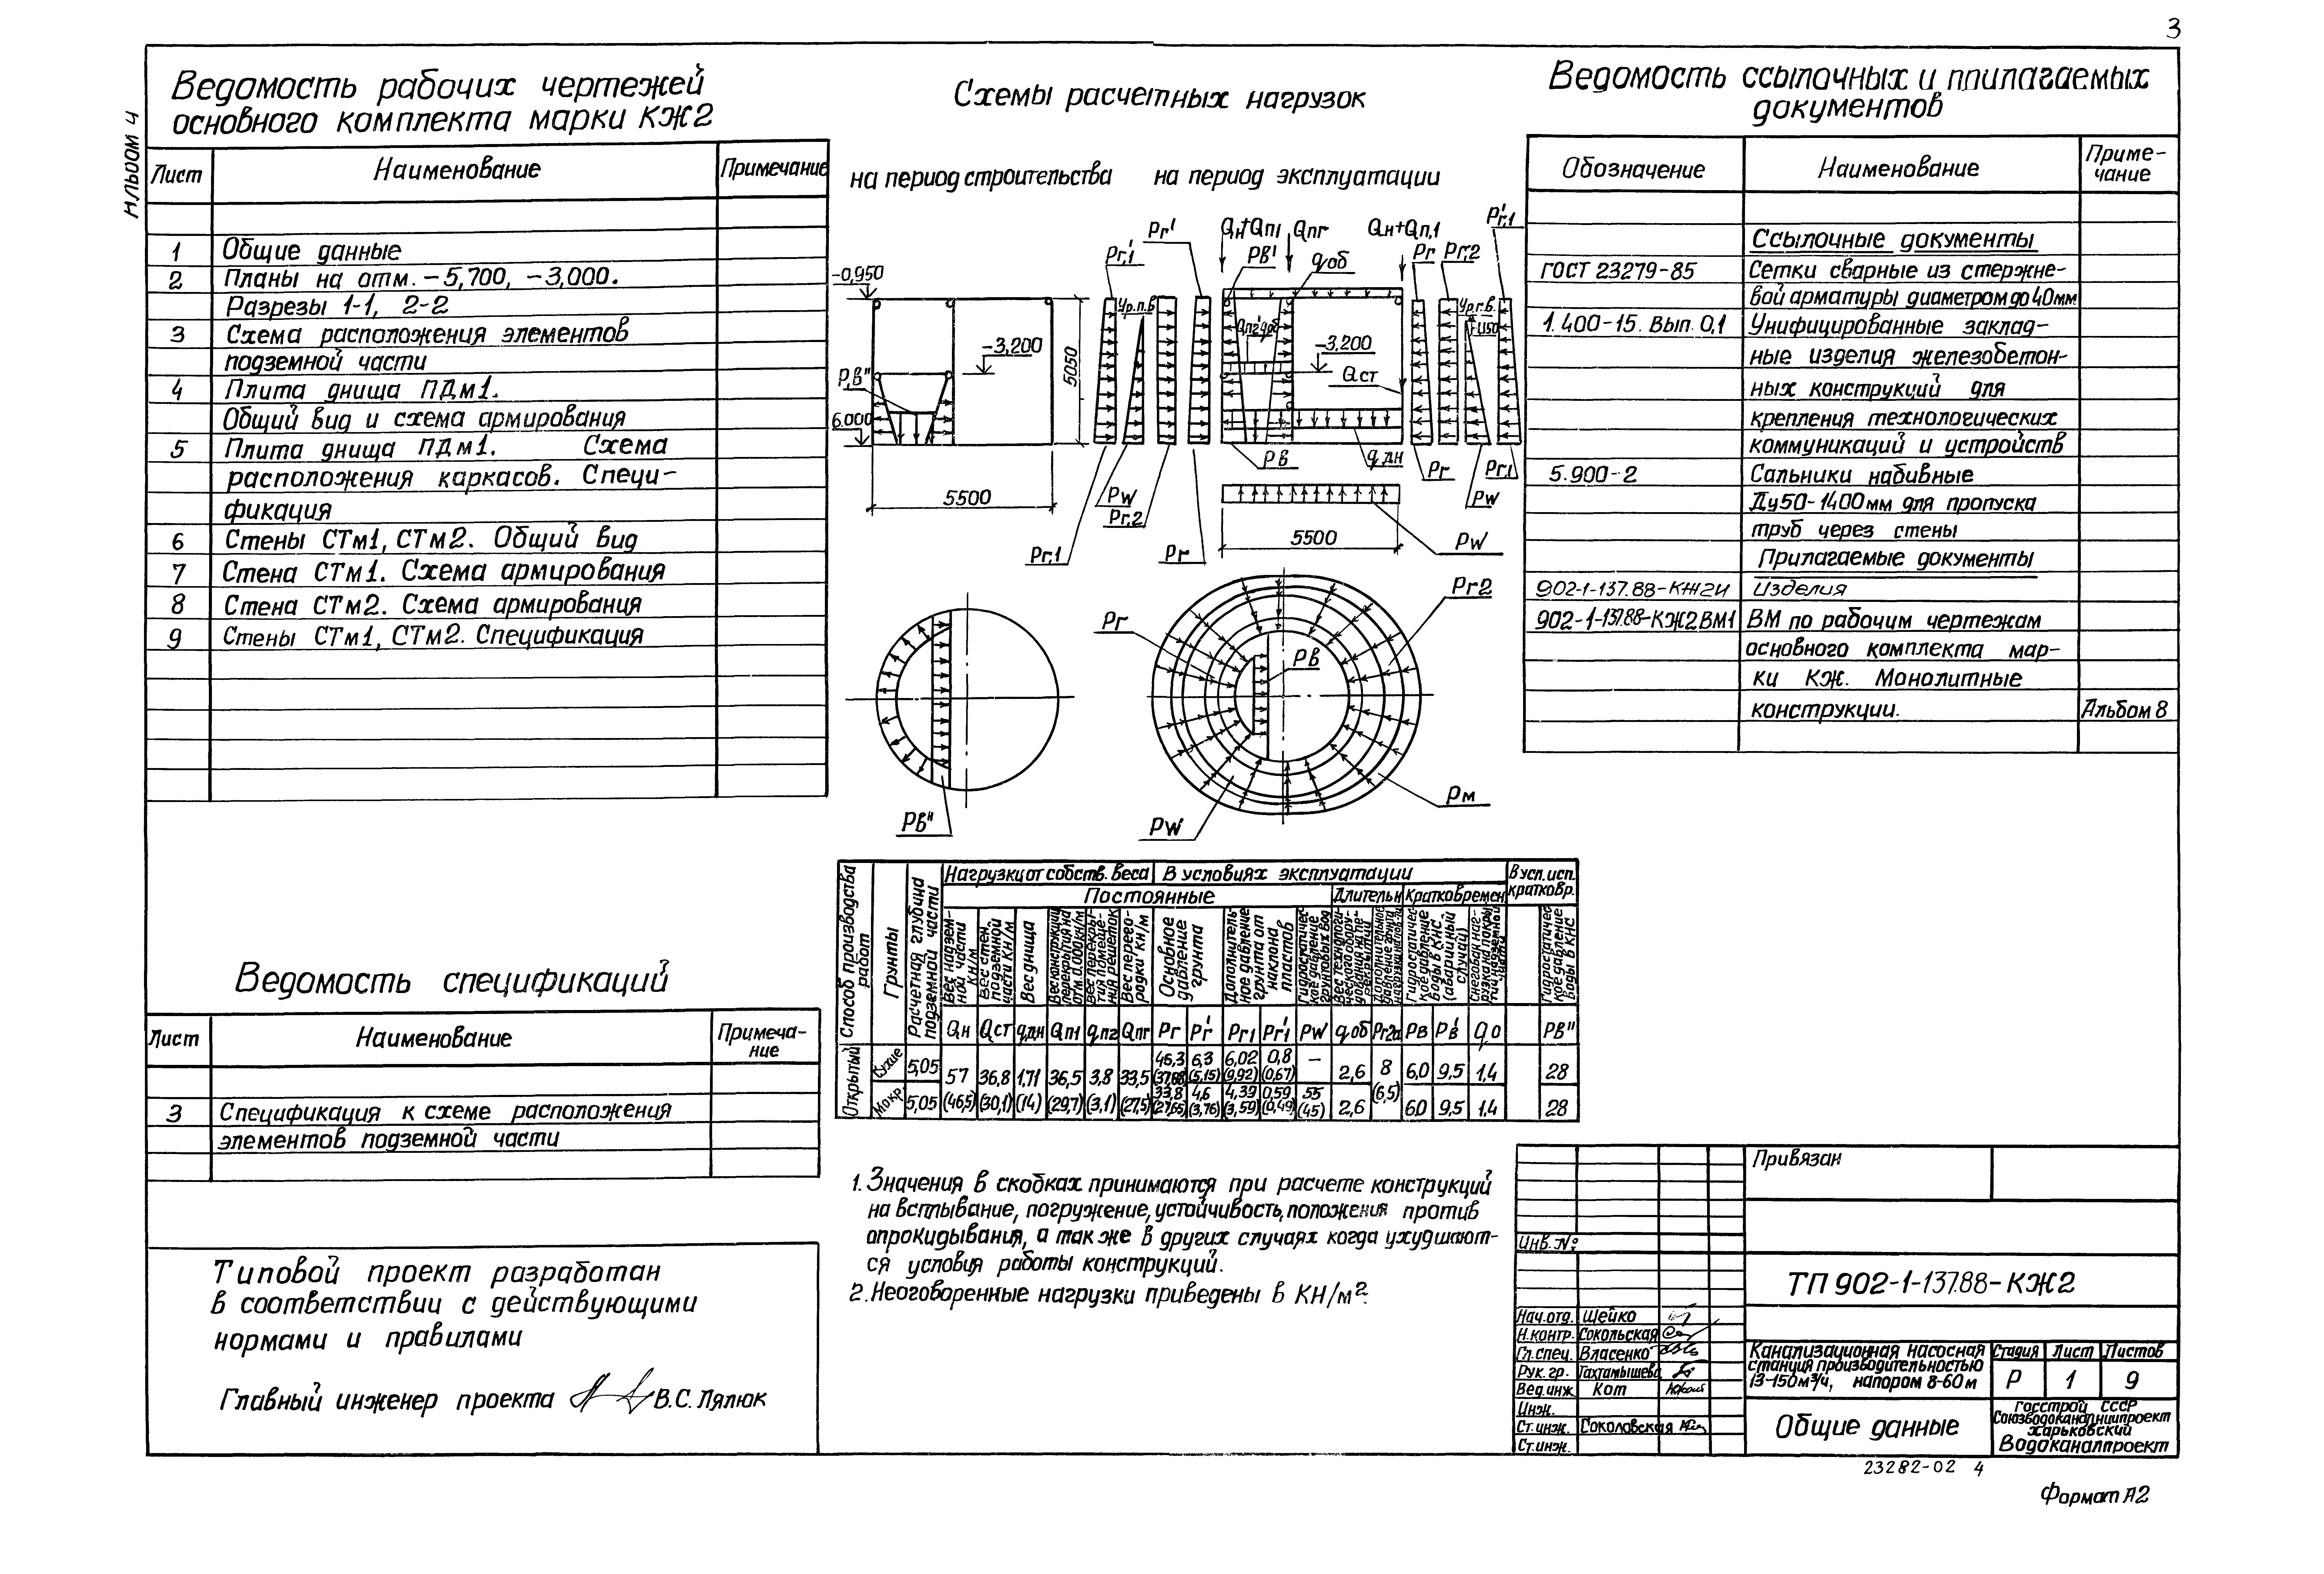 3
Альбом 4
Ведомость рабочих чертежей
основного комплекта марки КЖ2
Лист Наименование Примечание
1 Общие данные
2 Планы на отм. -5,700, -3,000.
Разрезы 1-1, 2-2
3 Схема расположения элементов
подземной части
4 Плита днища ПДм1.
Общий вид и схема армирования
5 Плита днища ПДм1. Схема
расположения каркасов. Специ-
фикация
6 Стены СТм1, СТм2. Общий вид
7 Стена СТм1. Схема армирования
8 Стена СТм2. Схема армирования
9 Стены СТм1, СТм2. Спецификация
Ведомость спецификаций
Лист Наименование Примеча-
ние
3 Спецификация к схеме расположения
элементов подземной части
Типовой проект разработан
в соответствии с действующими
нормами и правилами
Главный инженер проекта В.С. Лялюк
Схемы расчетных нагрузок
на период строительства на период эксплуатации
-0,950
-3,200
Рв"
6.000
5050
5500
Рг,1'
Ур.п.в
Рг'
Рг,1
Рw
Рг,2
Рг
Qн+Qп1 Qпг
Рв'
qоб
Qн+Qп,1
Рг Рг,2
Рг,1'
Ур.г.в.
-3,200
Qст
Рв
qдн
Рг
Рw
Рг,1
5500
Рw
Рв"
Рг
Рг2
Рв
Рw
Рм
Способ производства работ
Грунты
Расчетная глубина подземной части
Нагрузки от собств. веса В условиях эксплуатации В усл. исп. кратковр.
Постоянные Длительн Кратковремен.
Вес надзем-ной части кН/м
Вес стен подземной части кН/м
Вес днища
Вес конструкций перекрытия на отм. 0.000 кН/м
Вес перекры-тия помеще-ния решеток
Вес перего-родки кН/м
Основное давление грунта
Дополнитель-ное давление грунта от наклона пластов
Гидростатичес-кое давление грунтовых вод
Гидростатичес-кое давление воды в КНС (аварийный случай)
Гидростатичес-кое давление воды в КНС
Qн Qст qдн Qп1 qпг Qпг Рг Рг' Рг1 Рг1' Рw qоб Рг2а Рв Рв' Qо Рв"
Открытый
Сухие 5,05 57 36,8 1,71 36,5 3,8 33,5 46,3 6,3 6,02 0,8 — 2,6 8 6,0 9,5 1,4 28
(37,88) (5,15) (9,92) (0,67)
Мокр. 5,05 (46,5) (30,1) (14) (29,7) (3,1) (27,5) 33,8 4,6 4,39 0,59 55 2,6 (6,5) 6,0 9,5 1,4 28
(27,65) (3,76) (3,59) (0,49) (45)
1. Значения в скобках принимаются при расчете конструкций
на всплывание, погружение, устойчивость, положения против
опрокидывания, а так же в других случаях когда ухудшают-
ся условия работы конструкций.
2. Неоговоренные нагрузки приведены в КН/м².
Ведомость ссылочных и прилагаемых
документов
Обозначение Наименование Приме-
чание
Ссылочные документы
ГОСТ 23279-85 Сетки сварные из стержне-
вой арматуры диаметром до 40мм
1.400-15. Вып. 0,1 Унифицированные заклад-
ные изделия железобетон-
ных конструкций для
крепления технологических
коммуникаций и устройств
5.900-2 Сальники набивные
Ду50-1400мм для пропуска
труб через стены
Прилагаемые документы
902-1-137.88-КЖ2И Изделия
902-1-137.88-КЖ2ВМ1 ВМ по рабочим чертежам
основного комплекта мар-
ки КЖ. Монолитные
конструкции. Альбом 8
Привязан
Инв. №
ТП 902-1-137.88-КЖ2
Нач.отд. Шейко
Н.контр. Сокольская
Гл.спец. Власенко
Рук. гр. Тахтамышева
Вед.инж. Кот
Инж.
Ст.инж. Соколовская
Ст.инж.
Канализационная насосная
станция производительностью
13-150м³/ч, напором 8-60м
Стадия Лист Листов
Р 1 9
Общие данные
Госстрой СССР
Союзводоканалниипроект
Харьковский
Водоканалпроект
23282-02 4
Формат А2